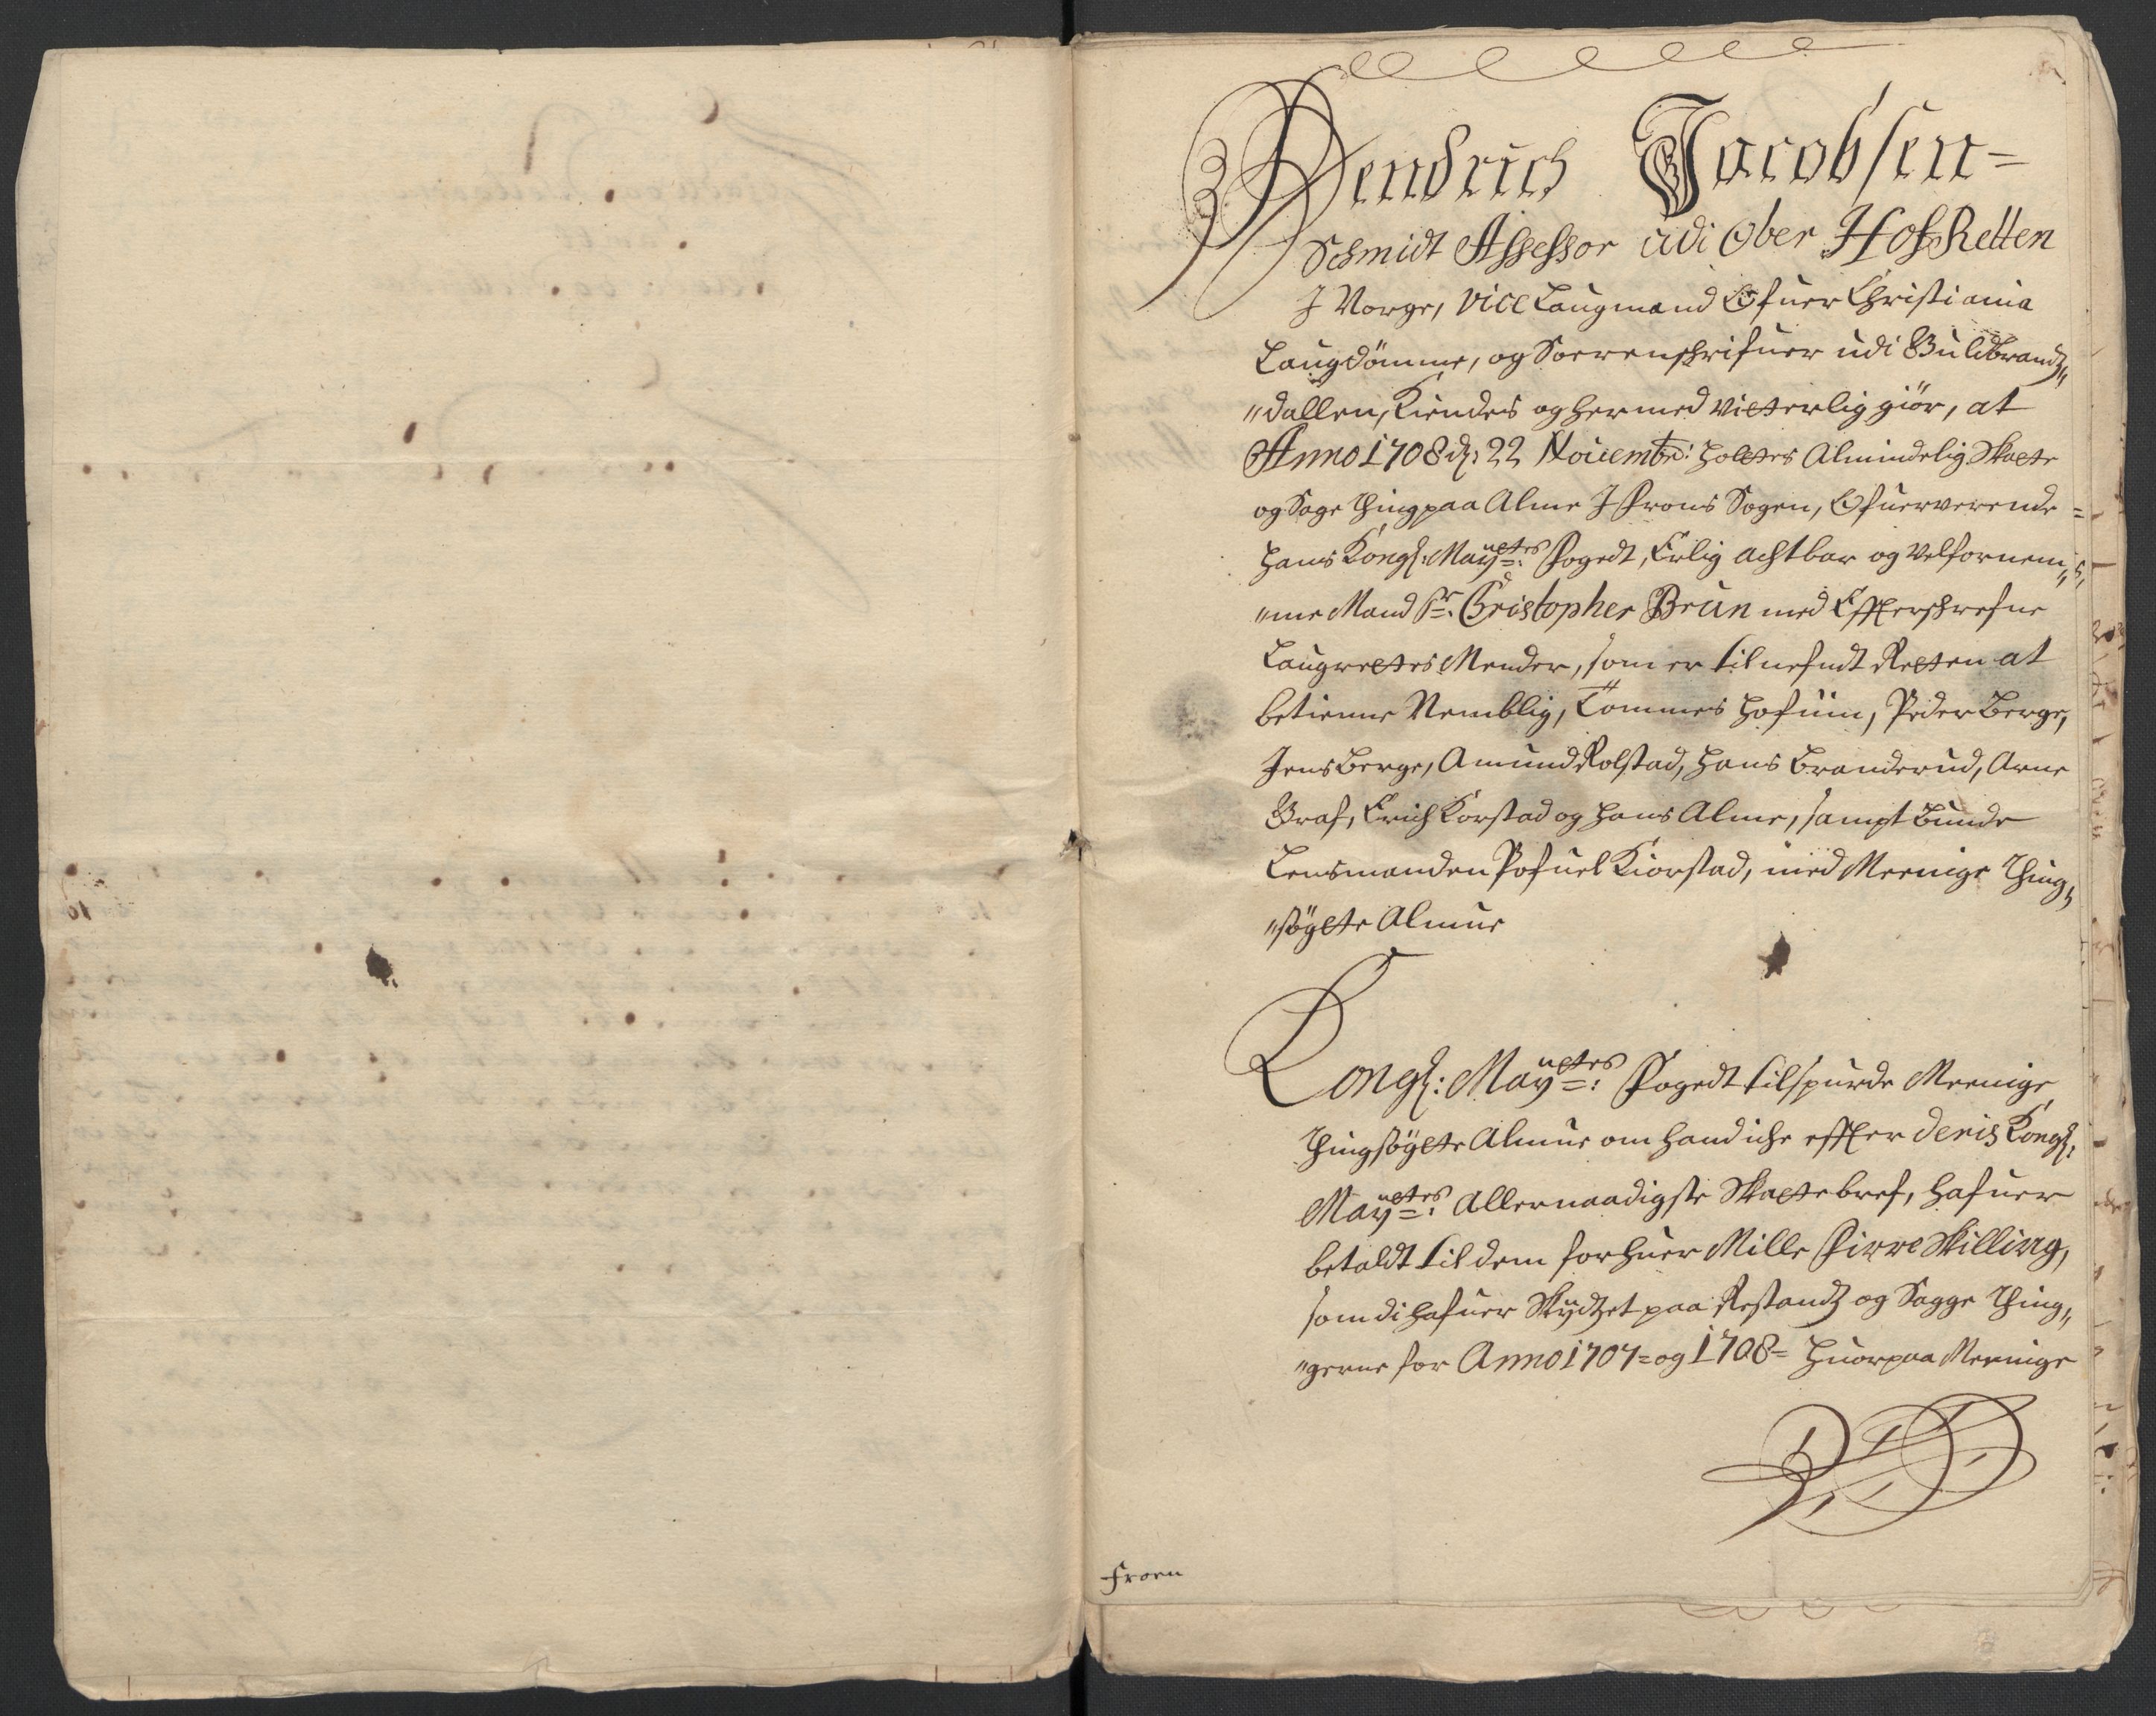 Hendrich Jacobsen=
Schmidt Assessor udi Ober HofRetten
J Norge, vice Laugmand Ofuer Christiania
Laugdömme, og Sorenschrifuer udi Guldbrandz„
„dallen, Kiendes og hermed vitterlig giör, at
Anno 1708 d: 22 Novembr: holtes Almindelig Skatte
og Sage Thing paa Alme J Frons Sogen, Ofuerverende =
hans Kongl: Mayttes: Foged, Erlig achtbar og Velfornem„
„me Mand Sr. Christopher Brun med Effterschrefne
Laugrettes Mender, som er tilnefndt Retten at
betienne Nemblig, Tommes Hofuin, Peder Berge,
Jens Berge, Amund Rolstad, Hans Branderud, Arne
Graf, Erich Korstad og Hans Alme, sampt Bunde
Lensmanden Pofuel Kiorstad, med Meenige Thing„
„sögte Almue
Kongl: Mayttes: Fogedt tilspurde Meenige
Thingsögte Almue om hand iche effter denis Kongl:
Mayttes: Allernaadigste Skattebref, hafuer
betaldt til dem for huer Mille Firre Skilling,
som di hafuer Skydtzet paa Restandz og Sagge Thing„
„gerne for Anno 1707= og 1708= huorpaa Meenige
Froen